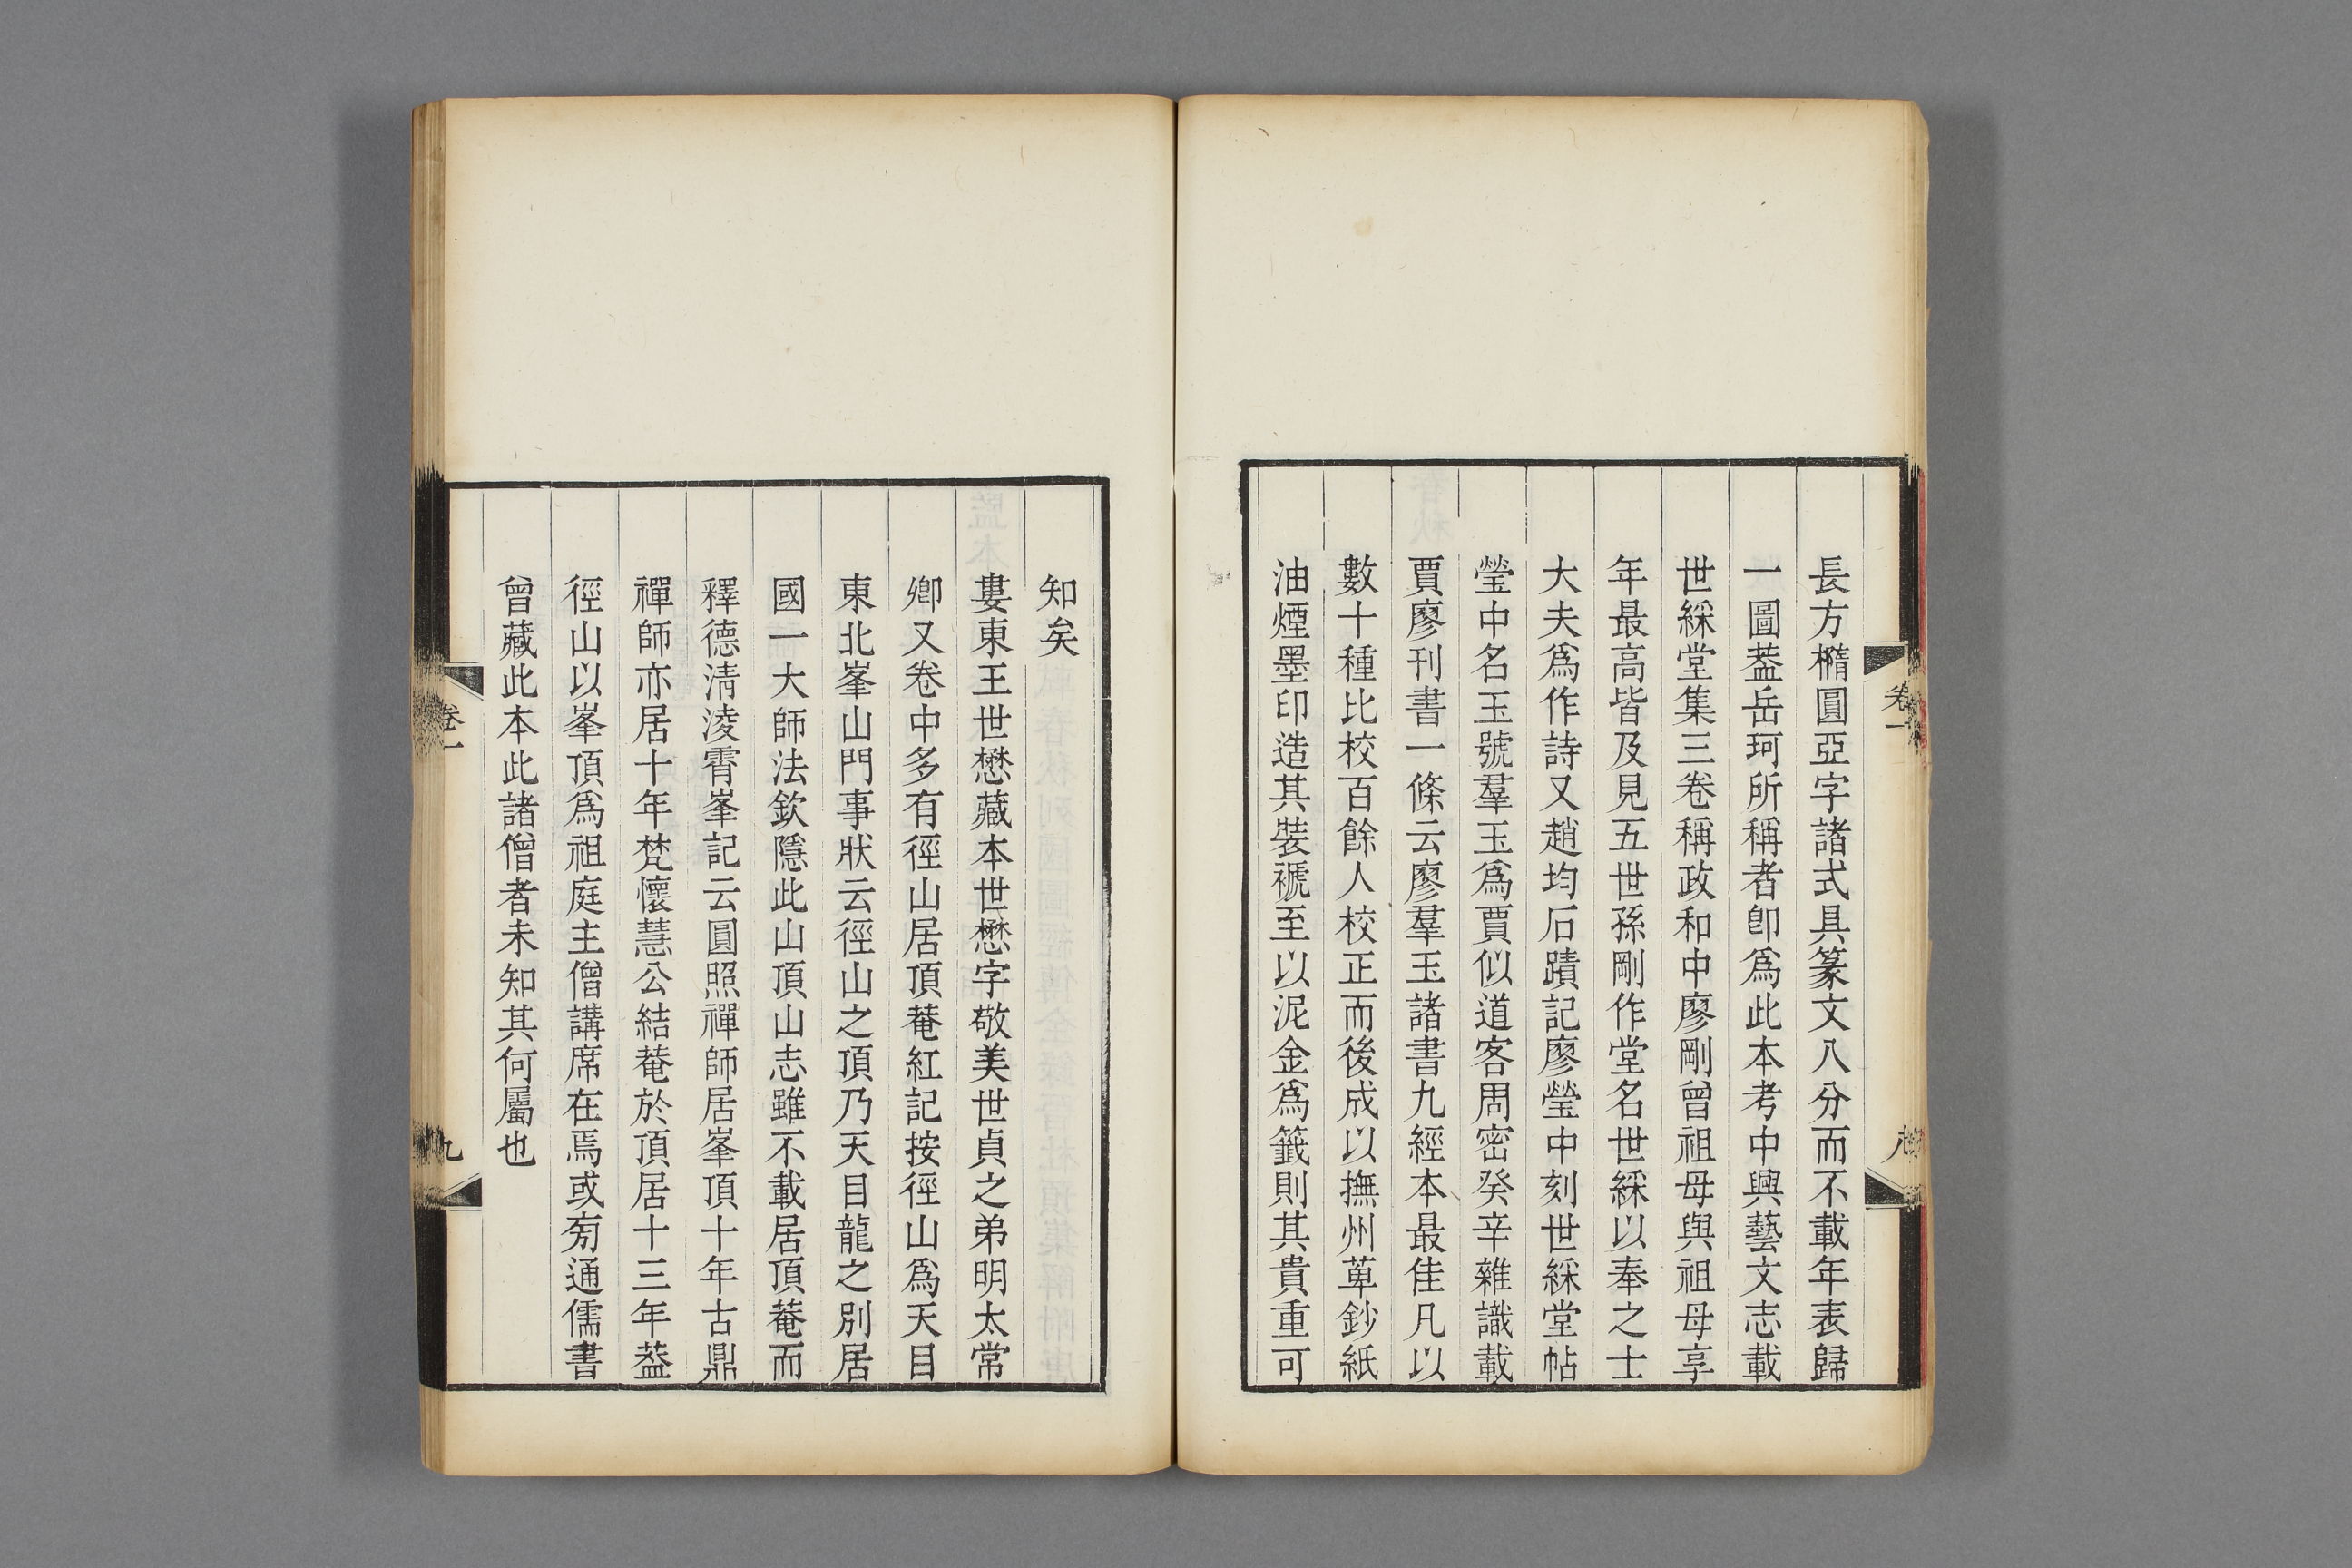 長方橢圓亞字諸式具篆文八分而不載年表歸
一圖葢岳珂所稱者卽爲此本考中興藝文志載
世綵堂集三卷稱政和中廖剛曾祖母與祖母享
年最高皆及見五世孫剛作堂名世綵以奉之士
大夫爲作詩又趙均石蹟記廖瑩中刻世綵堂帖
瑩中名玉號羣玉爲賈似道客周密癸辛雜識載
賈廖刊書一條云廖羣玉諸書九經本最佳凡以
數十種比校百餘人校正而後成以撫州萆鈔紙
油煙墨印造其裝褫至以泥金爲籤則其貴重可
卷一
八
知矣
婁東王世懋藏本世懋字敬美世貞之弟明太常
卿又卷中多有徑山居頂菴紅記按徑山爲天目
東北峯山門事狀云徑山之頂乃天目龍之別居
國一大師法欽隱此山頂山志雖不載居頂菴而
釋德清淩霄峯記云圓照禪師居峯頂十年古鼎
禪師亦居十年梵懷慧公結菴於頂居十三年葢
徑山以峯頂爲祖庭主僧講席在焉或菊通儒書
曾藏此本此諸僧者未知其何屬也
卷一
九